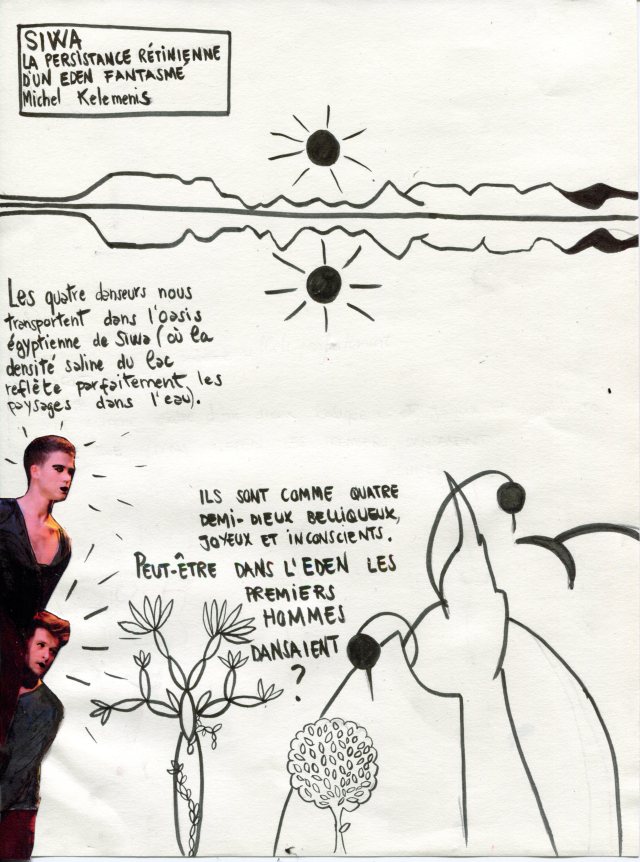 SIWA
LA PERSISTANCE RÉTINIENNE
D'UN EDEN FANTASME
Michel Kelemenis
Les quatre danseurs nous
transportent dans l'oasis
égyptienne de Siwa (où la
densité saline du lac
reflète parfaitement les
paysages dans l'eau).
ILS SONT COMME QUATRE
DEMI-DIEUX BELLIQUEUX,
JOYEUX ET INCONSCIENTS.
PEUT-ÊTRE DANS L'EDEN LES
PREMIERS
HOMMES
DANSAIENT
?